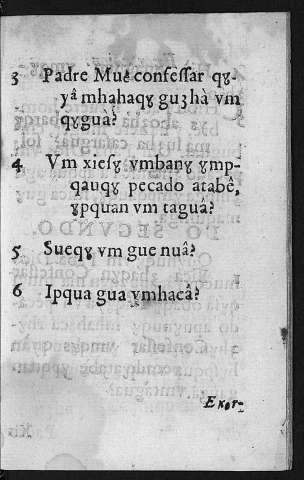 3 Padre Muê confessar qɣ-
yâ mhahaqɣ guʒhà vm
qɣguà?
4 Vm xiesɣ vmbanɣ ɣmp-
qauqɣ pecado atabê,
ɣpquan vm taguâ?
5 Sueqɣ vm gue nuâ?
6 Ipqua gua ɣmhacâ?
Exor-